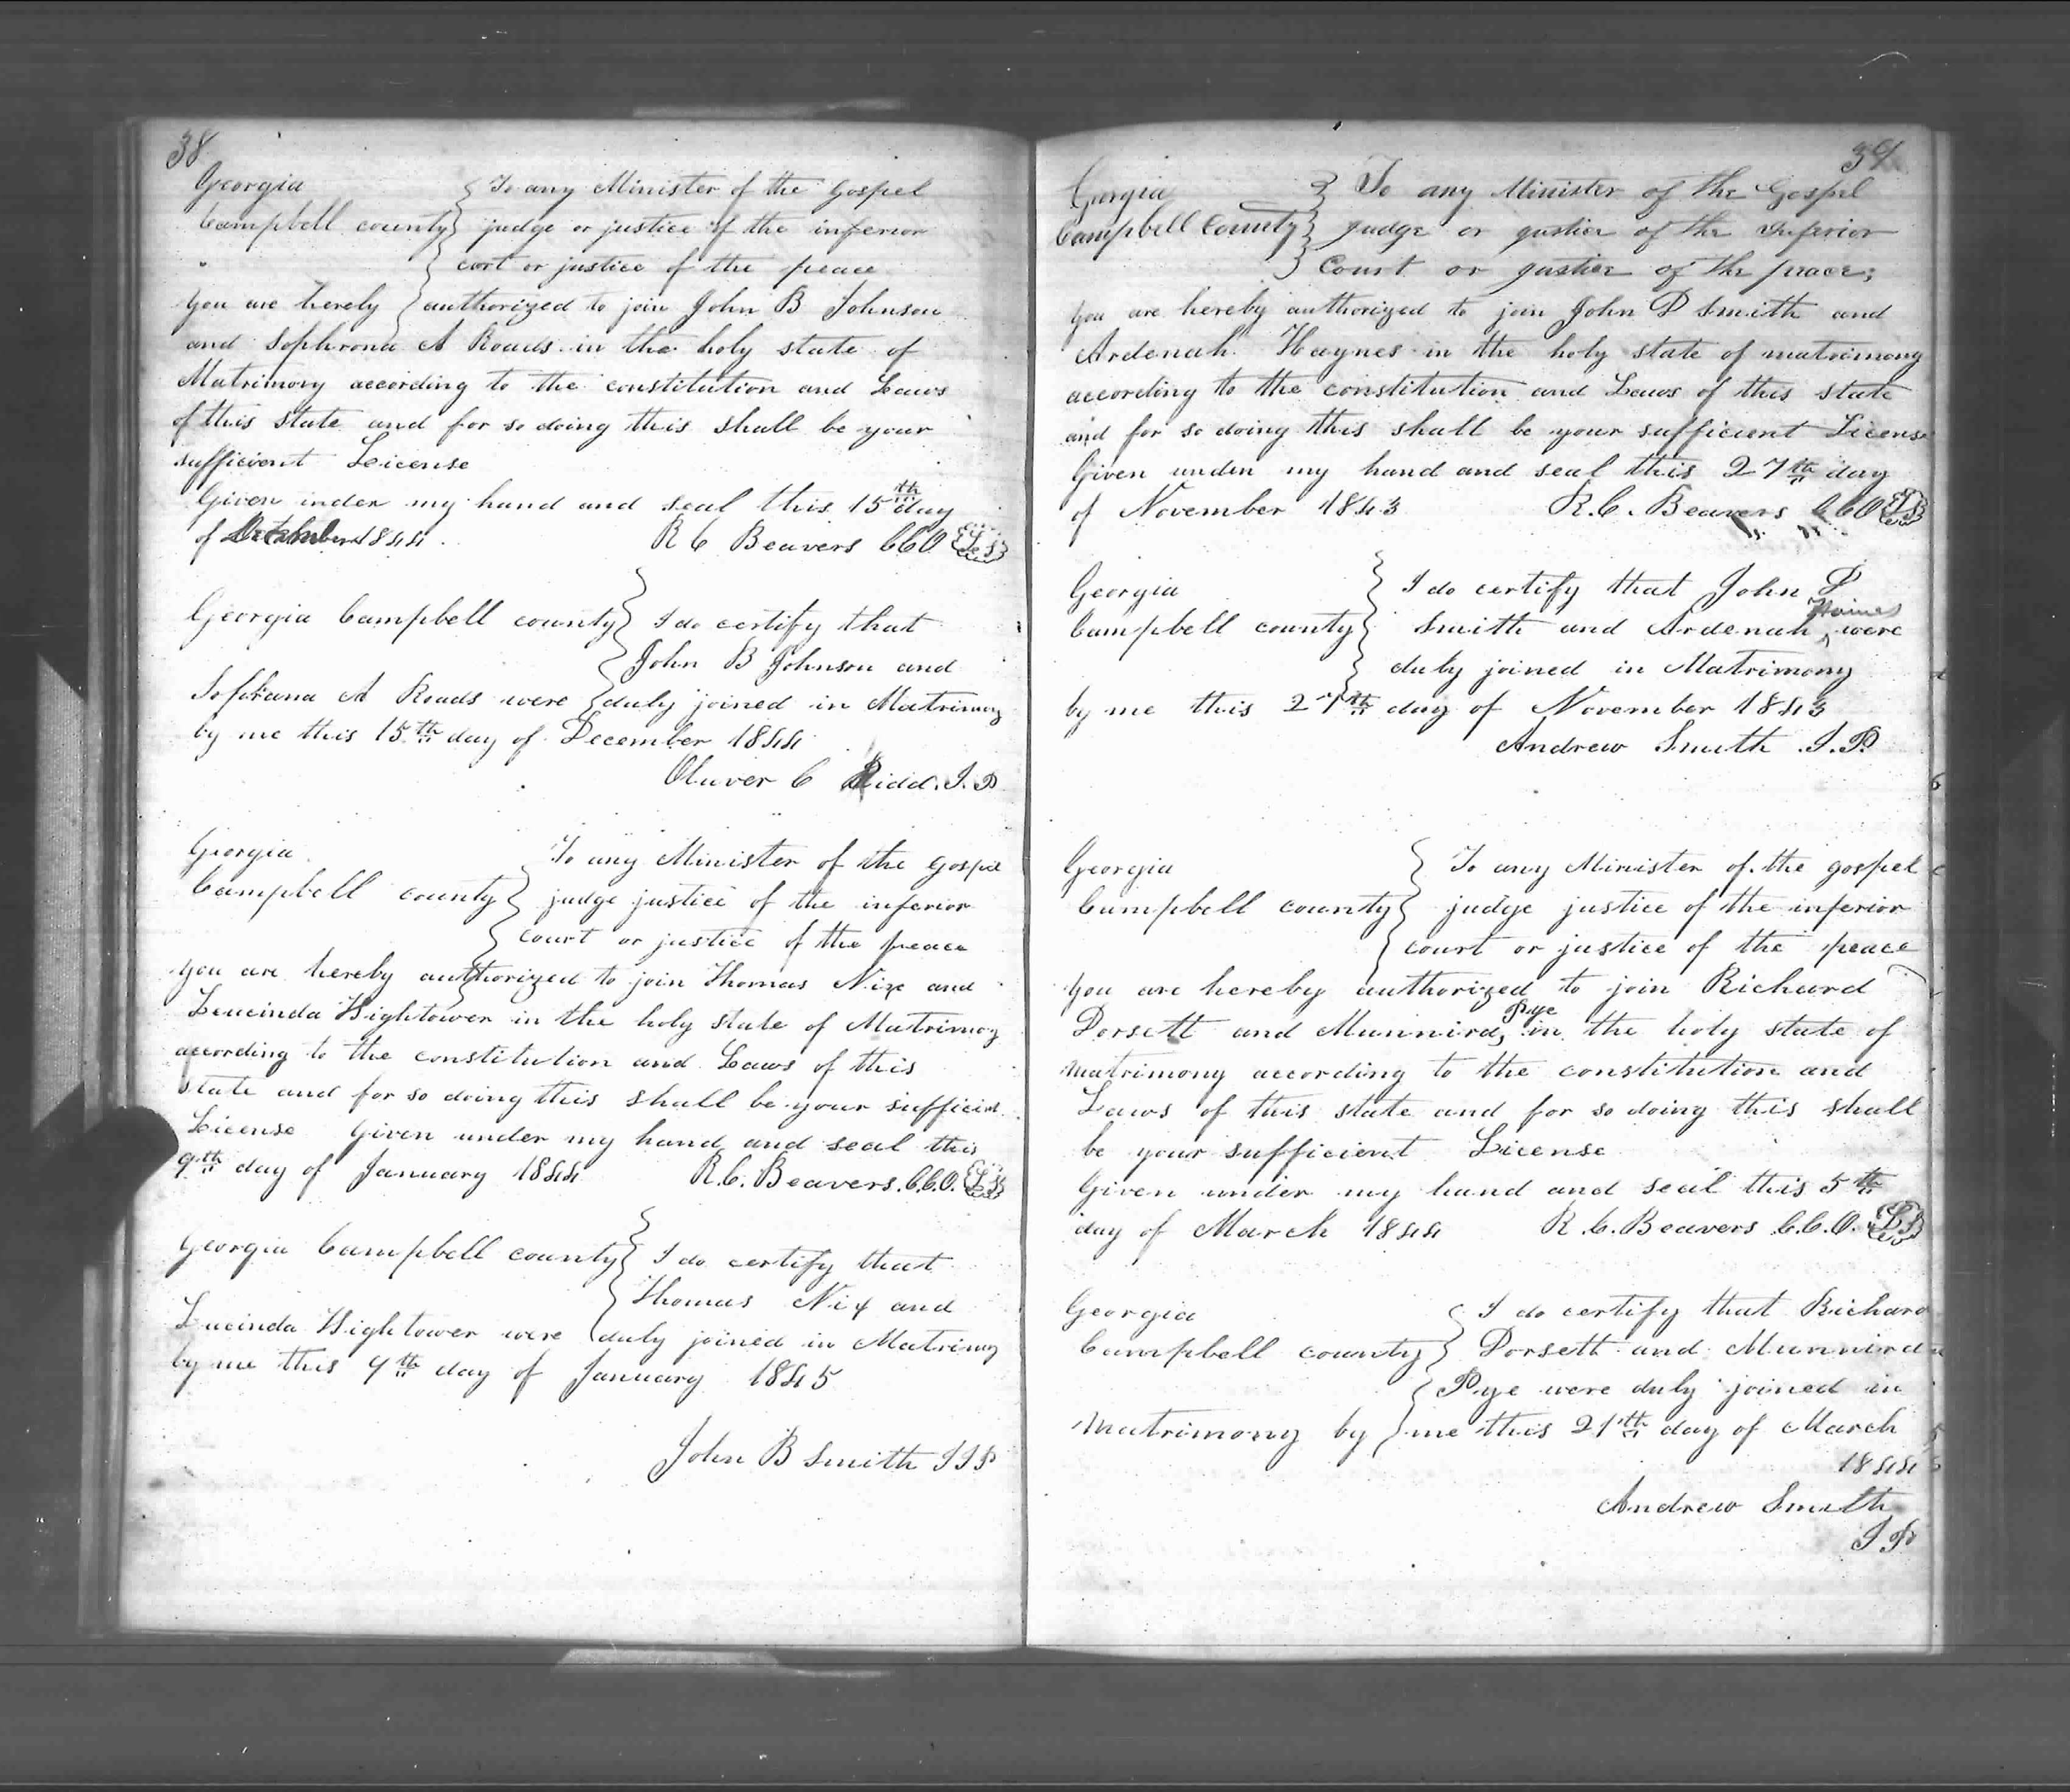 38
Georgia To any Minister of the Gospel
Campbell county judge or justice of the inferior
cort or justice of the peace
you are hereby authorized to join John B Johnson
and Sophrona A Roads in the holy state of
Matrimony according to the constitution and Laws
of this state and for so doing this shall be your
sufficient License
Given under my hand and seal this 15th day
of 1844. R C Beavers CCO LS
Georgia Campbell county I do certify that
John B Johnson and
A Roads were duly joined in Matrimony
by me this 15th day of December 1844
Oliver C J. P
Georgia To any Minister of the Gospel
Campbell county judge justice of the inferior
court or justice of the peace
you are hereby authorized to join Thomas Nix and
Leucinda Hightower in the holy state of Matrimony
according to the constitution and Laws of this
state and for so doing this shall be your sufficient
License Given under my hand and seal this
9th day of January 1844 R.C. Beavers. C.C.O. LS
Georgia Campbell county I do certify that
Thomas Nix and
Lucinda Hightower were duly joined in Matrimony
by me this 9th day of January 1845
John B Smith JIP
39
Georgia To any Minister of the Gospel
Campbell County Judge or justice of the Inferior
Court or justice of the peace;
you are hereby authorized to join John P Smith and
Ardenah Haynes in the holy state of matrimony
according to the constitution and Laws of this state
and for so doing this shall be your sufficient License
Given under my hand and seal this 27th day
of November 1843 R.C. Beavers CCO LS
Georgia I do certify that John P
Haines
Campbell county Smith and Ardenah were
duly joined in Matrimony
by me this 27th day of November 1843
Andrew Smith J.P
Georgia To any Minister of the gospel
Campbell county judge justice of the inferior
court or justice of the peace
you are hereby authorized to join Richard
Pye
Dorsett and Munnird, in the holy state of
matrimony according to the constitution and
Laws of this state and for so doing this shall
be your sufficient License
Given under my hand and seal this 5th
day of March 1844 R.C. Beavers C.C.O. LS
Georgia I do certify that Richard
Campbell county Dorsett and Munnirda
Pye were duly joined in
matrimony by me this 21th day of March
1844
Andrew Smith
J P